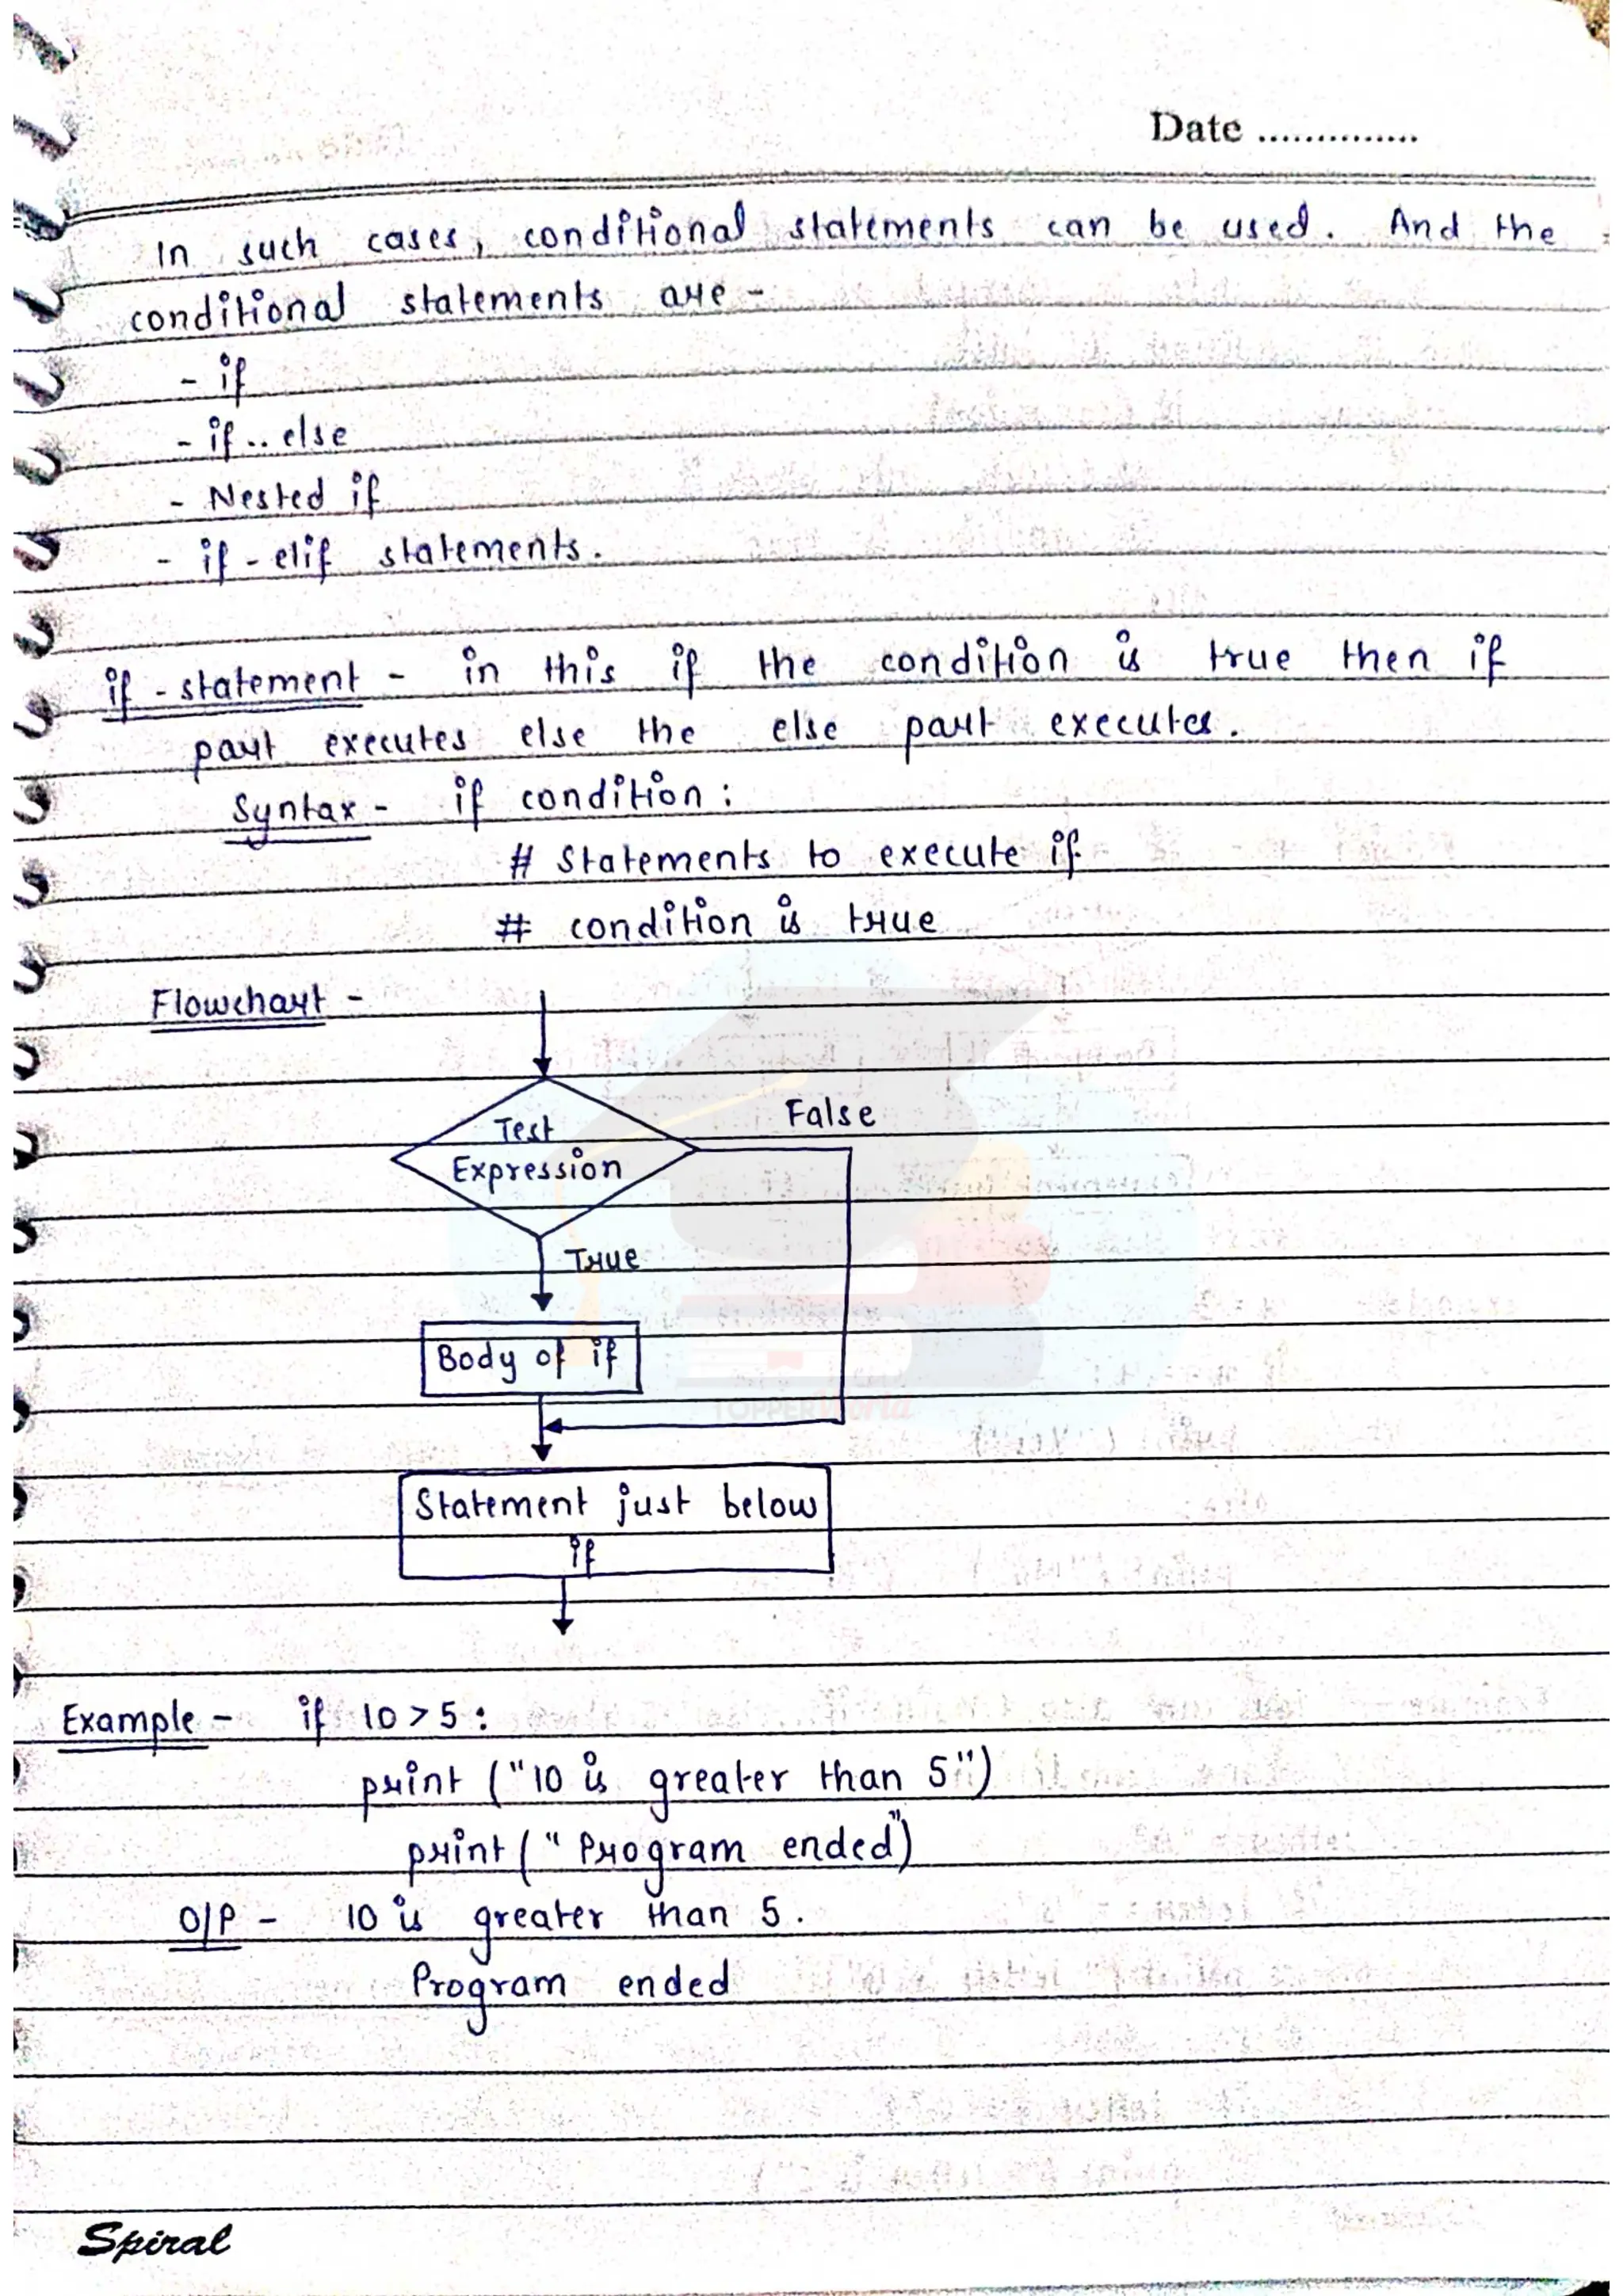 Date ..............
In such cases, conditional statements can be used. And the
conditional statements are -
- if
- if .. else
- Nested if
- if - elif statements.
if - statement - in this if the condition is true then if
part executes else the else part executes.
Syntax - if condition :
# Statements to execute if
# condition is true
Flowchart -
Test
Expression
False
True
Body of if
TOPPERWorld
Statement just below
if
Example - if 10 > 5 :
print ("10 is greater than 5")
print (" Program ended")
O/P - 10 is greater than 5.
Program ended
Spiral